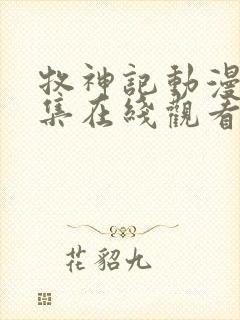 牧神記動漫
集在綫觀看
花貂九